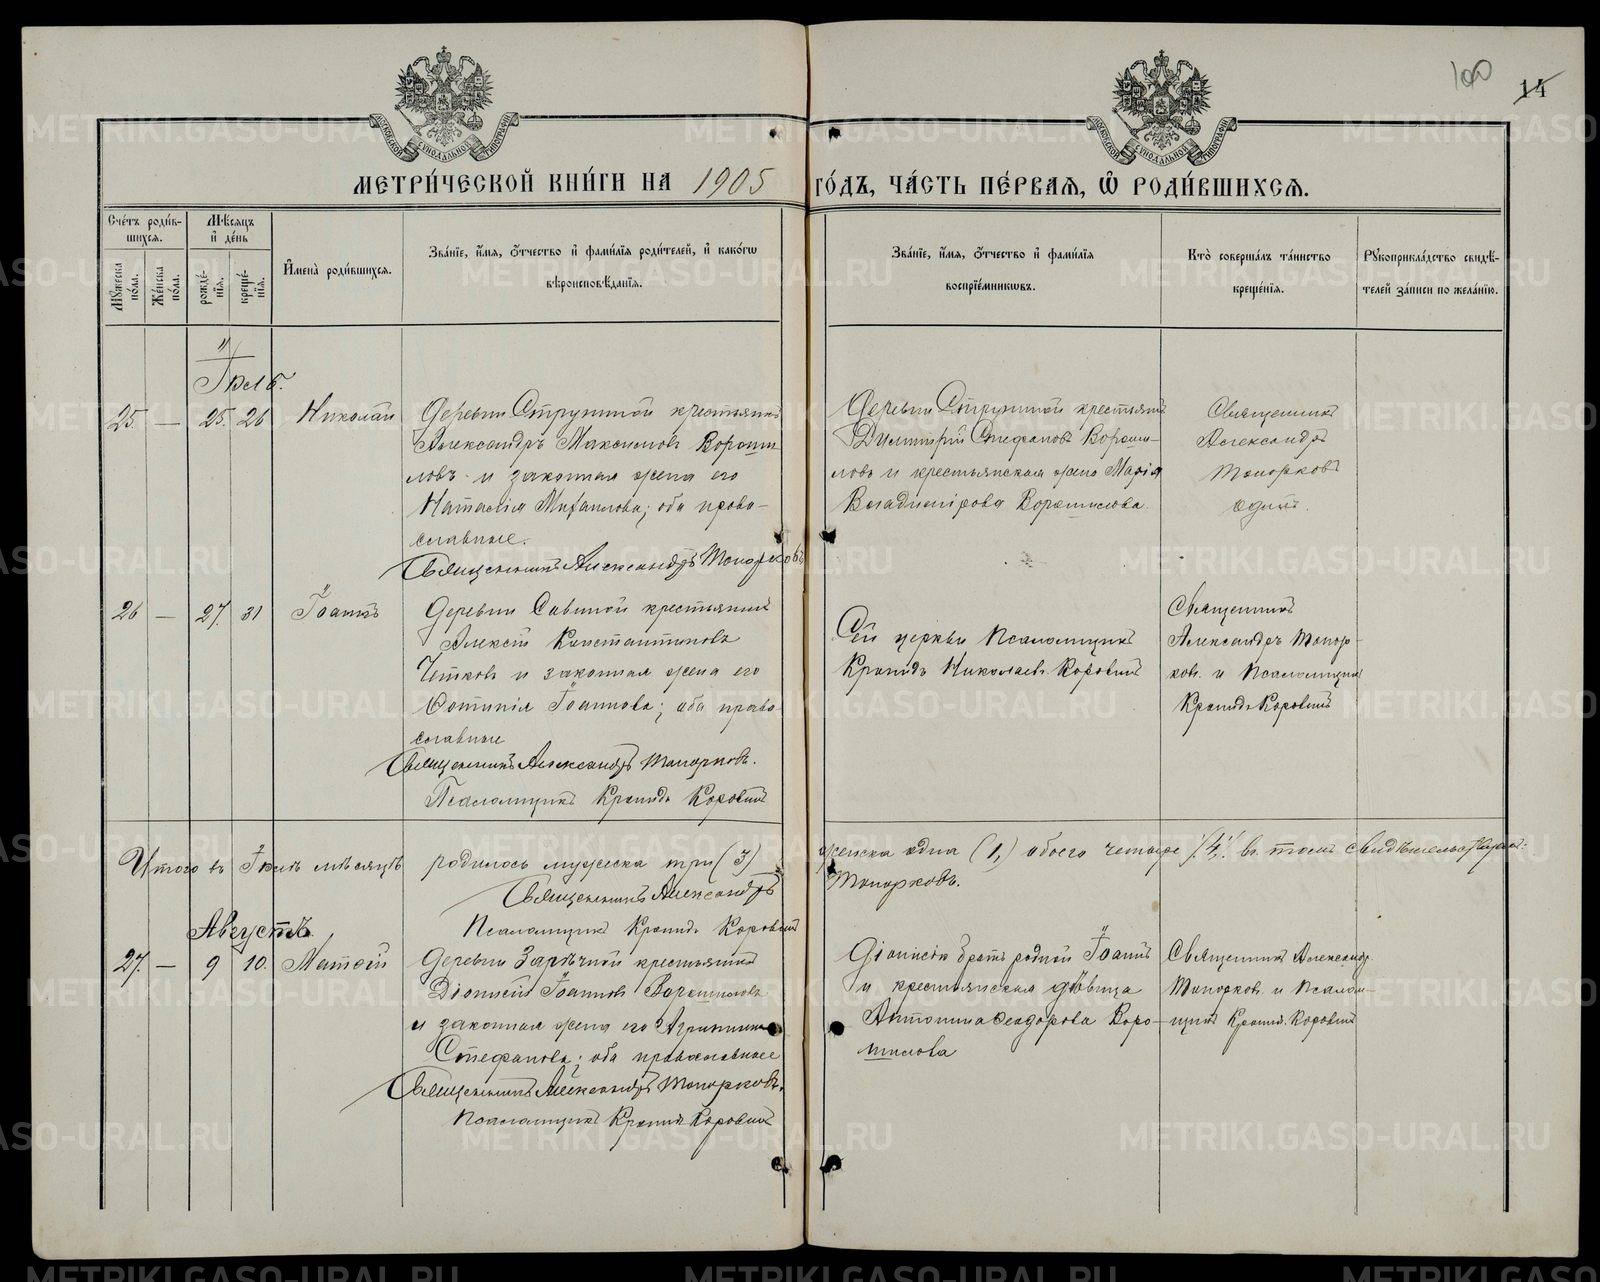 100
14
МЕТРИ́ЧЕСКОЙ КНИ́ГИ НА 1905 ГО́ДЪ, ЧА́СТЬ ПЕ́РВАЯ, Ѽ РОДИ́ВШИХСЯ.
Сче́тъ роди́в-
шихся.
Мѣ́сяцъ
и҆ де́нь
Мꙋ́жеска по́ла.
Же́нска по́ла.
рожде́нїя.
креще́нїя.
И҆мена̀ роди́вшихся.
Зва́нїе, и҆́мя, ѻ҆́тчество и҆ фами́лїя роди́телей, и҆ како́гѡ
вѣроисповѣ́данїя.
Зва́нїе, и҆́мя, ѻ҆́тчество и҆ фами́лїя
воспрїе́мникѡвъ.
Кто̀ соверша́лъ та́инство
креще́нїя.
Рꙋкоприкла́дство свидѣ́-
телей за́писи по жела́нїю.
Іюль.
25. — 25. 26 Николай
Деревни Струниной крестьянинъ
Александръ Максимовъ Вороши
ловъ и законная жена его
Наталія Михаилова; оба право-
славные.
Священникъ Александръ Топорковъ
Деревни Струниной крестьянинъ
Димитрій Стефановъ Вороши-
ловъ и крестьянская жена Марія
Владимірова Ворошилова.
Священникъ
Александръ
Топорковъ
одинъ.
26 — 27. 31 Іоаннъ
Деревни Савиной крестьянинъ
Алексій Константиновъ
и законная жена его
Фотинія Іоаннова; оба право-
славные
Священникъ Александръ Топорковъ.
Псаломщикъ Кронидъ Коровинъ
Сей церкви Псаломщикъ
Кронидъ Николаевъ Коровинъ
Священникъ
Александръ Топор-
ковъ и Псаломщикъ
Кронидъ Коровинъ
Итого въ Іюлѣ мѣсяцѣ родилось мужеска три (3) женска одна (1,) обоего четыре /4,/ въ томъ свидѣтельствуютъ:
Священникъ Александръ Топорковъ.
Псаломщикъ Кронидъ Коровинъ
Августъ
27. — 9 10. Матѳій
Деревни Зарѣчной крестьянинъ
Діонисій Іоанновъ Ворошиловъ
и законная жена его Агриппина
Стефанова; оба православные
Священникъ Александръ Топорковъ.
Псаломщикъ Кронидъ Коровинъ
братъ родной Іоаннъ
и крестьянская дѣвица
Антонина Ѳеодорова Воро-
шилова
Священникъ Александръ
Топорковъ и Псалом-
щикъ Кронидъ Коровинъ
METRIKI.GASO-URAL.RU